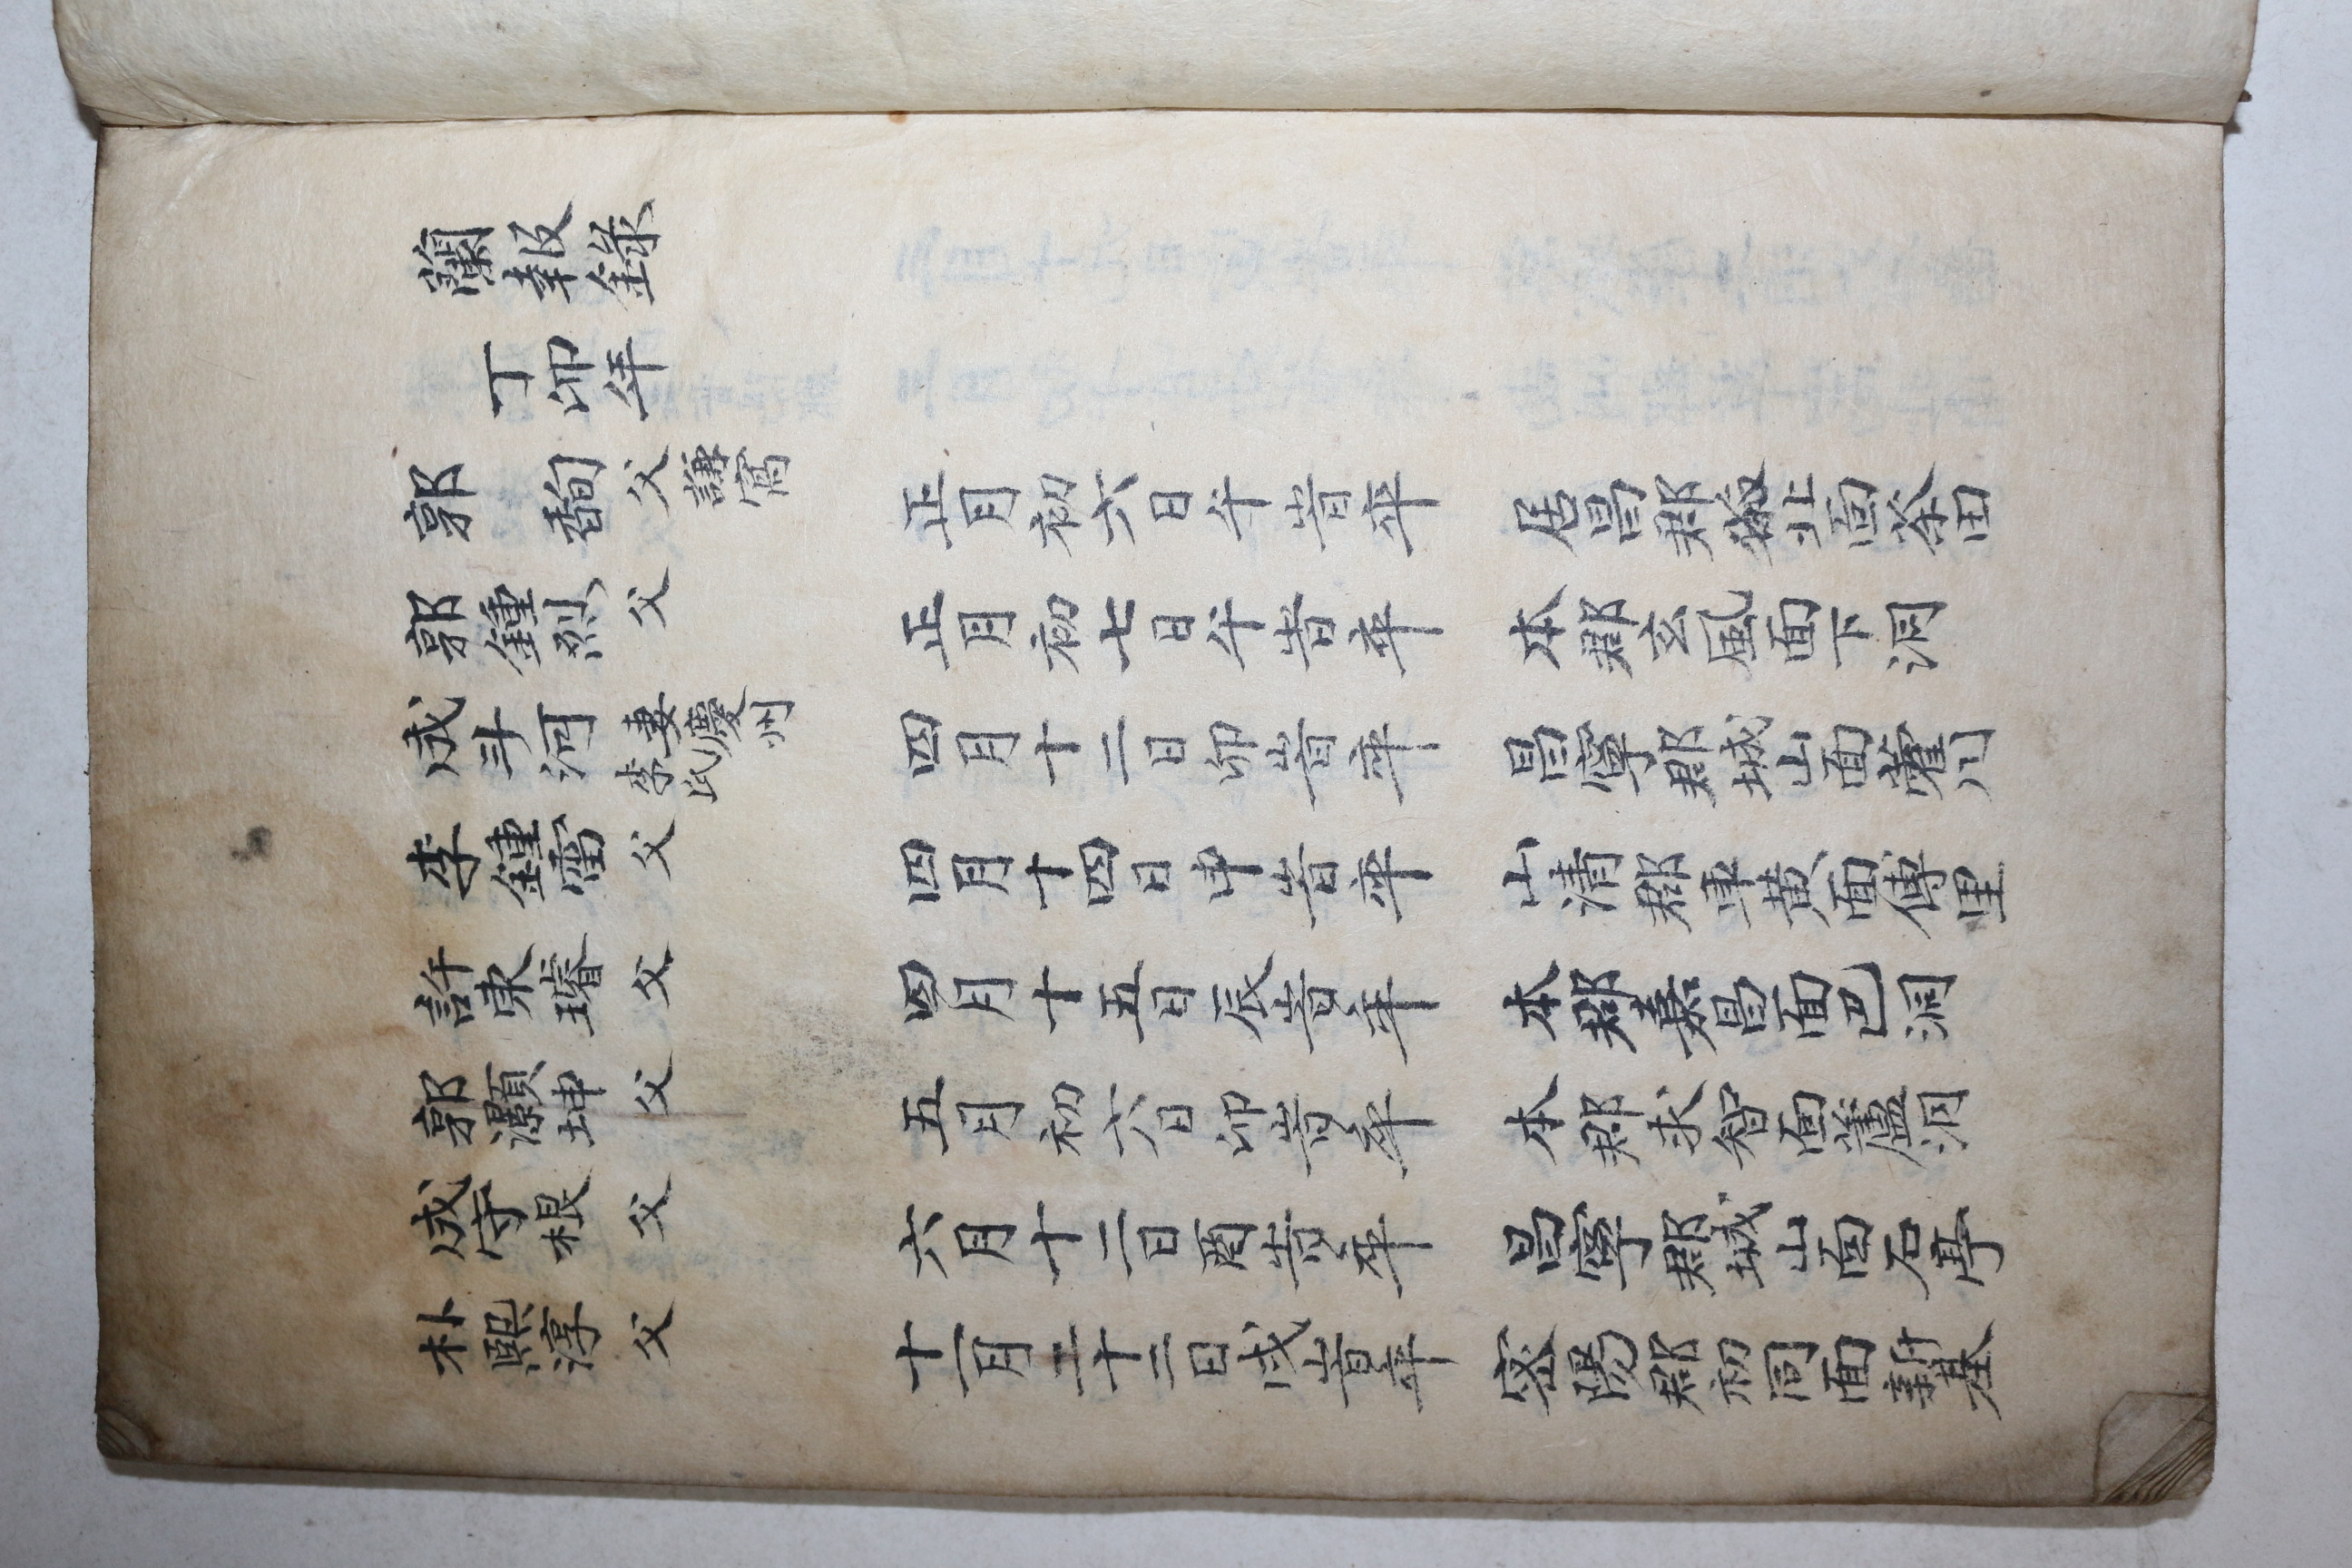 蘭報錄
丁卯年
郭 馪父謙窩 正月初六日午旹卒 居昌郡 北面茶田
郭鍾烈 父 正月初七日午旹卒 本郡玄風面下洞
成斗河 妻慶州李氏 四月十二日卯旹卒 昌寧郡城山面藿川
李鍾雷 父 四月十四日申旹卒 山清郡車黄面傅里
許東璿 父 四月十五日辰旹卒 本郡嘉昌面巴洞
郭灝坤 父 五月初六日卯旹卒 本郡求智面蘆洞
成守根 父 六月十二日酉旹卒 昌寧郡城山面石亭
朴熙淳 父 十一月二十二日戌旹卒 密陽郡初同面新基